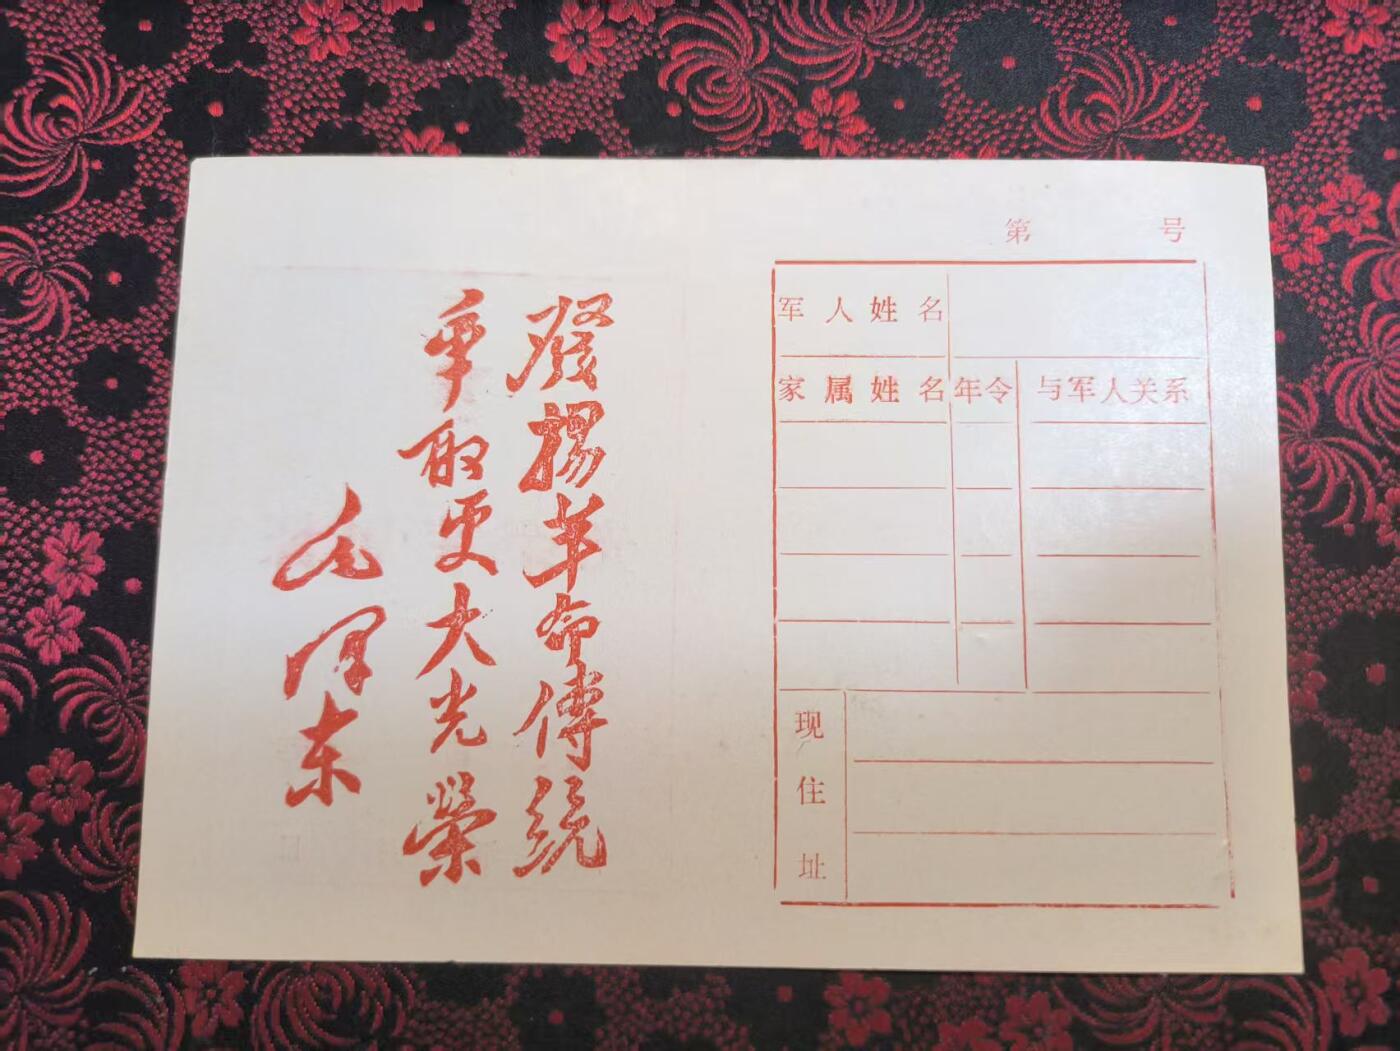 發揚革命傳統
爭取更大光榮
毛泽东
第 号
军人姓名
家属姓名 年令 与军人关系
现住址